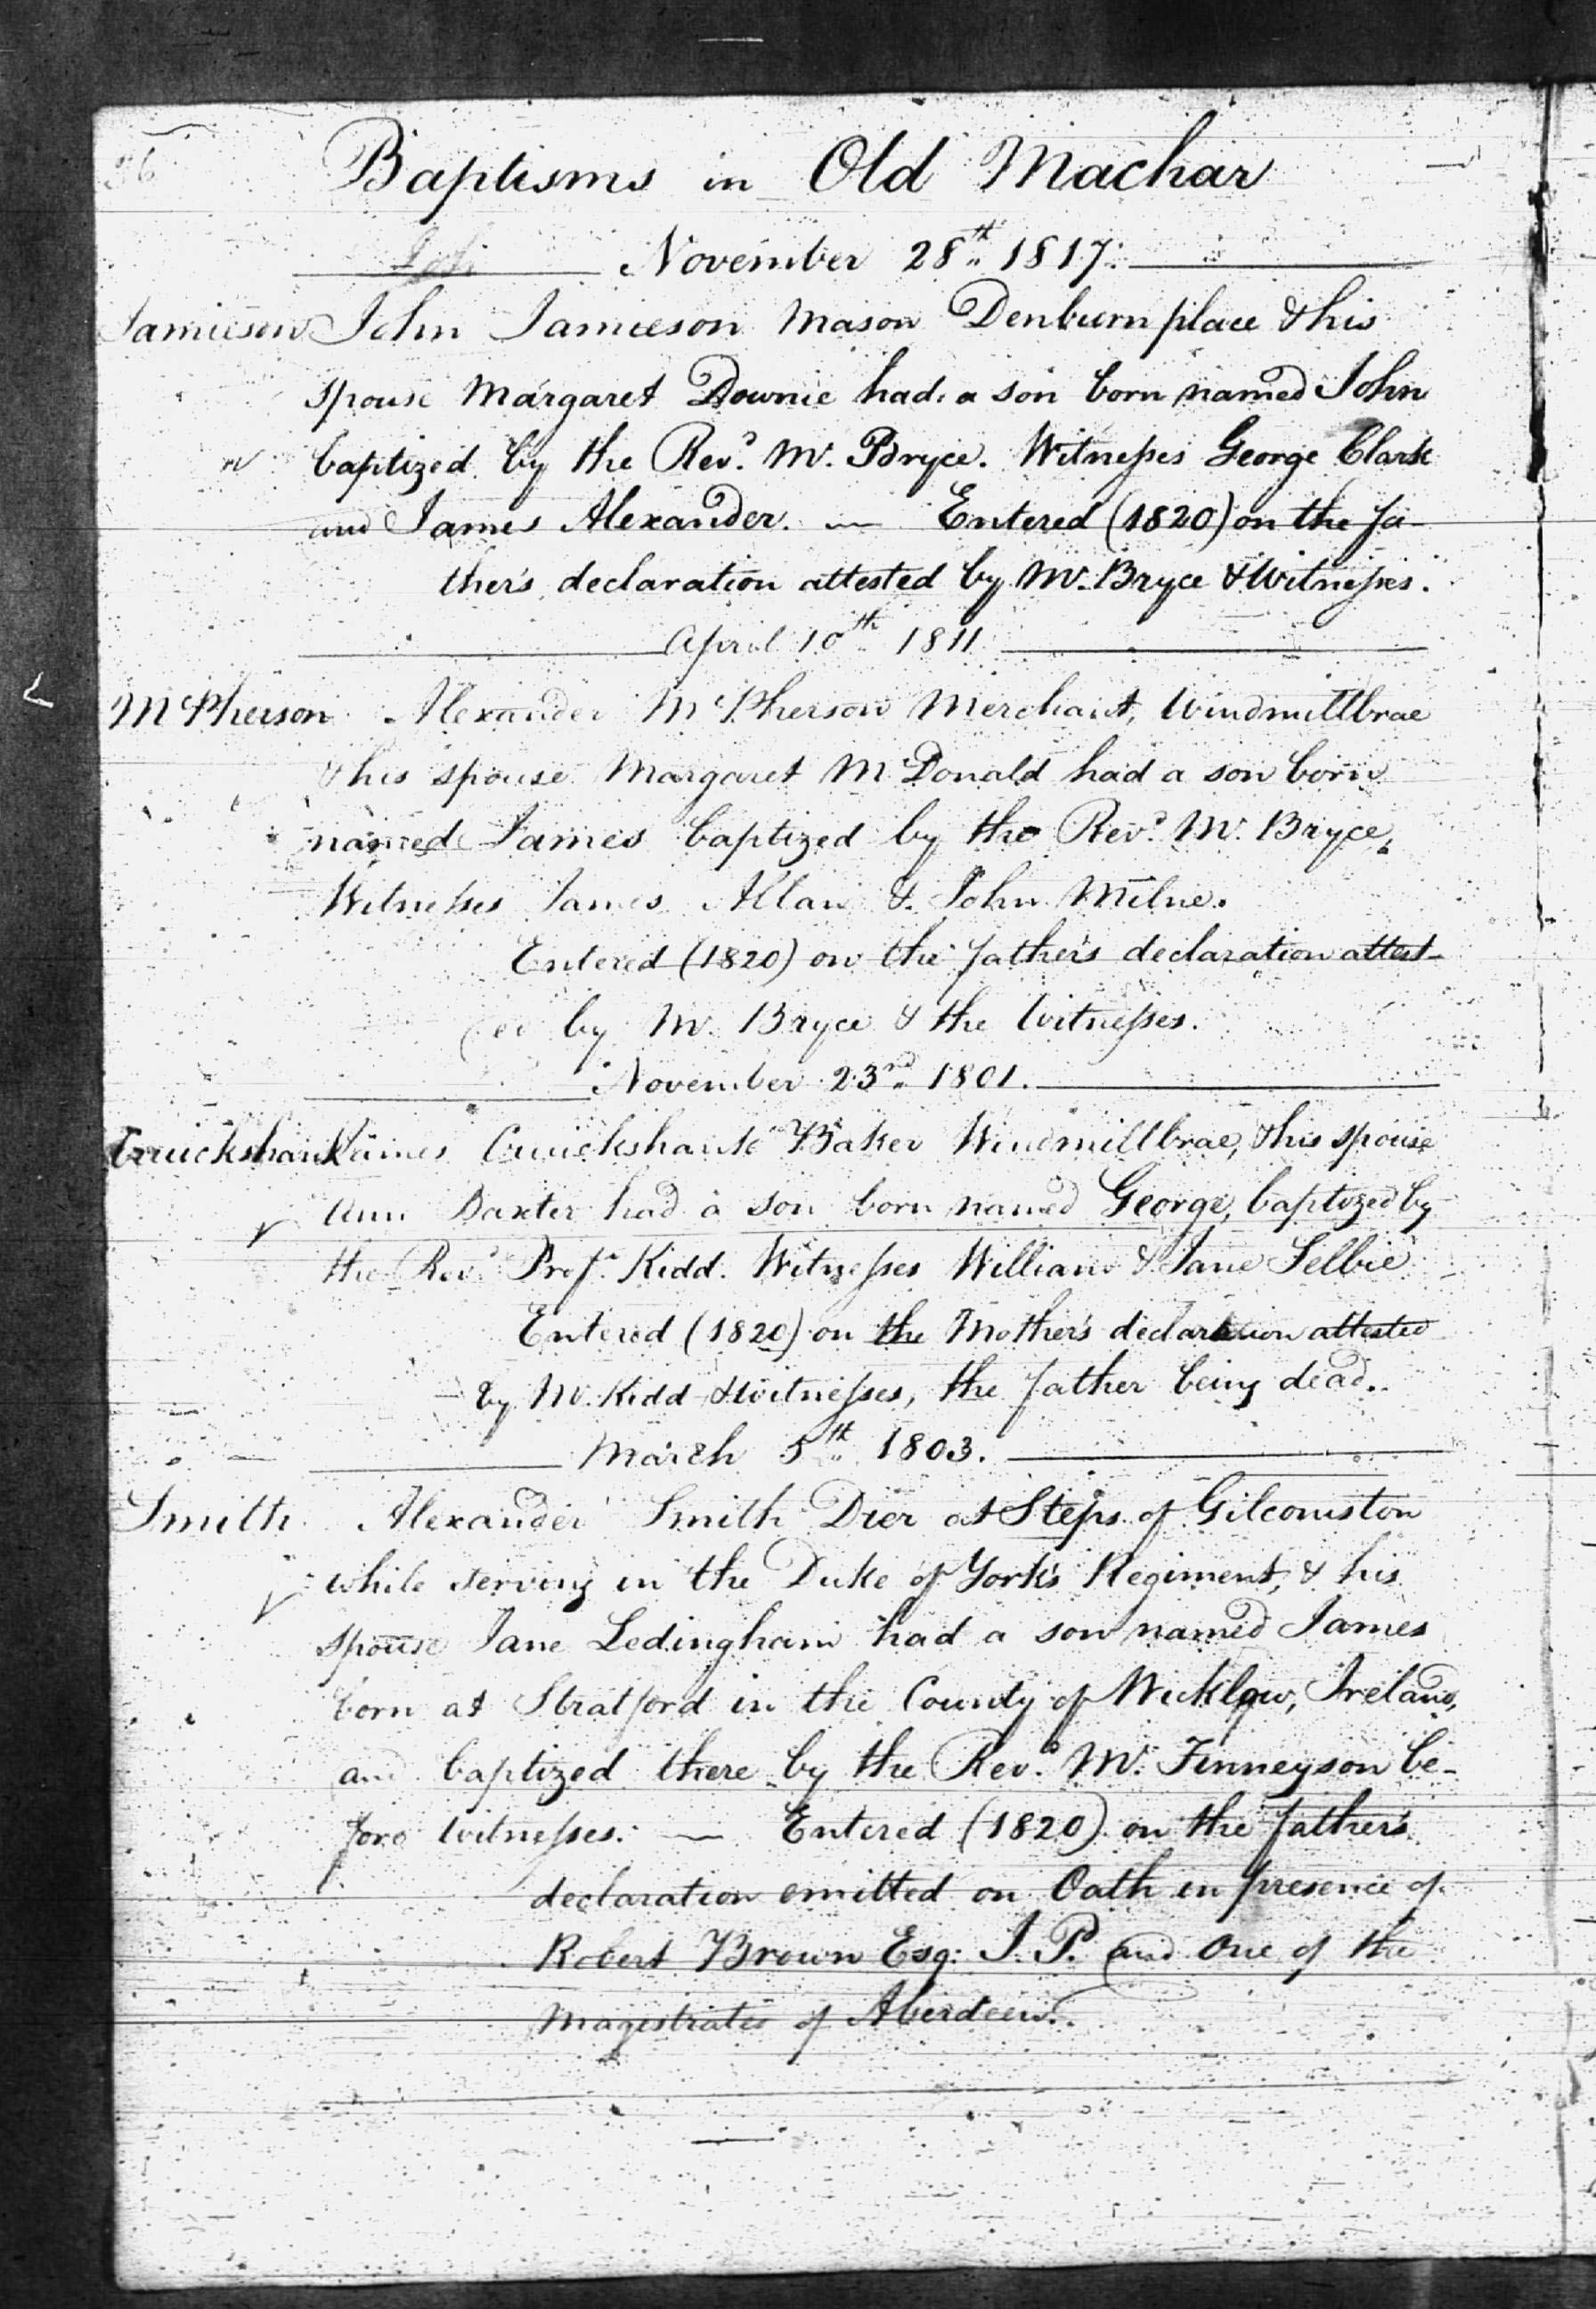 36
Baptisms in Old Machar
November 28th 1817.
Jamieson John Jamieson Mason Denburn place & his
spouse Margaret Downie had a son born named John
baptized by the Revd. Mr. Bryce. Witnesses George Clark
and James Alexander. — Entered (1820) on the fa-
ther's declaration attested by Mr. Bryce & Witnesses.
April 10th 1811
McPherson Alexander McPherson Merchant, Windmillbrae
& his spouse Margaret McDonald had a son born
named James baptized by the Revd. Mr. Bryce,
Witnesses James Allan & John Milne.
Entered (1820) on the father's declaration attest-
ed by Mr. Bryce & the Witnesses.
November 23rd 1801.
Cruickshank James Cruickshank Baker Windmillbrae, & his spouse
Ann Baxter had a son born named George, baptized by
the Revd. Profr. Kidd. Witnesses William & Jane Selbie
Entered (1820) on the Mother's declaration attested
by Mr. Kidd & Witnesses, the father being dead.
March 5th 1803.
Smith Alexander Smith Dier at Steps of Gilcomston
while serving in the Duke of York's Regiment, & his
spouse Jane Ledingham had a son named James
born at Stratford in the County of Wicklow, Ireland,
and baptized there by the Revd. Mr. Finneyson be-
fore witnesses. — Entered (1820) on the father's
declaration emitted on Oath in presence of
Robert Brown Esq: J. P. and One of the
Magistrates of Aberdeen.